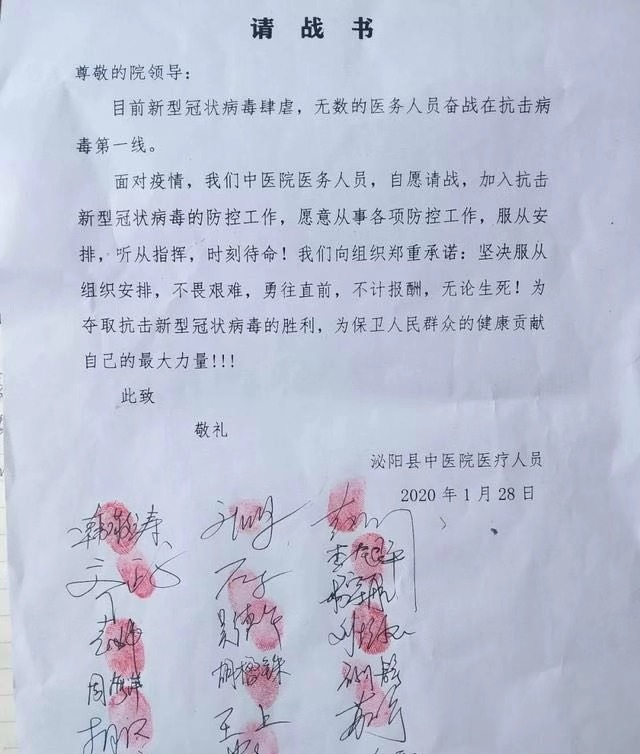 请战书
尊敬的院领导：
目前新型冠状病毒肆虐，无数的医务人员奋战在抗击病
毒第一线。
面对疫情，我们中医院医务人员，自愿请战，加入抗击
新型冠状病毒的防控工作，愿意从事各项防控工作，服从安
排，听从指挥，时刻待命！我们向组织郑重承诺：坚决服从
组织安排，不畏艰难，勇往直前，不计报酬，无论生死！为
夺取抗击新型冠状病毒的胜利，为保卫人民群众的健康贡献
自己的最大力量!!!
此致
敬礼
泌阳县中医院医疗人员
2020年1月28日